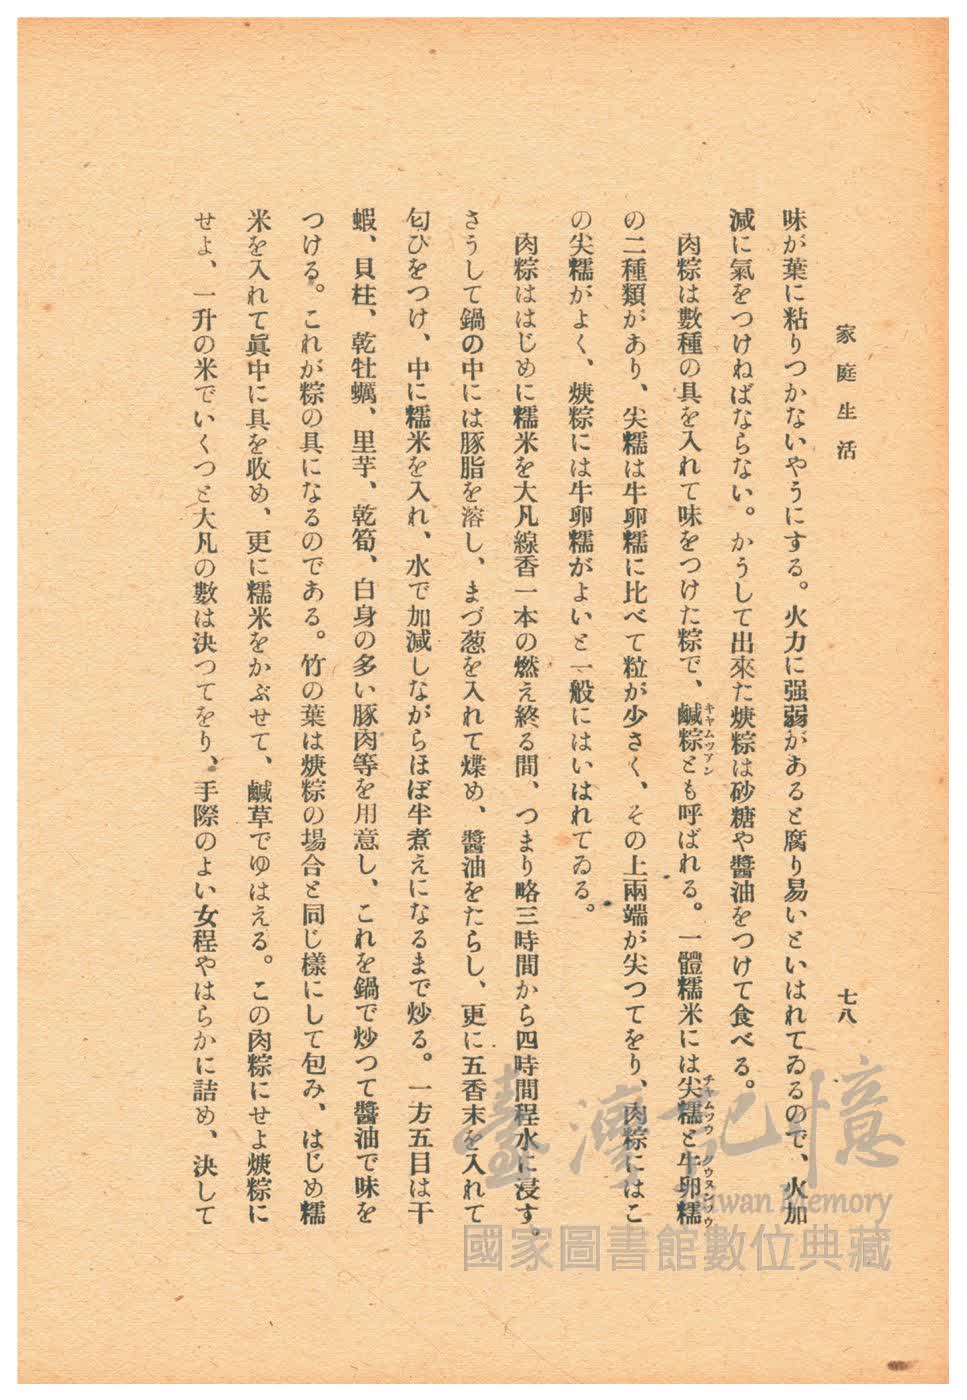 家庭生活
七八
味が葉に粘りつかないやうにする。火力に强弱があると腐り易いといはれてゐるので、火加
減に氣をつけねばならない。かうして出來た焿粽は砂糖や醬油をつけて食べる。
肉粽は數種の具を入れて味をつけた粽で、鹹粽とも呼ばれる。一體糯米には尖糯と牛卵糯
キヤムツアン
チヤムツウ
グウヌンツウ
の二種類があり、尖糯は牛卵糯に比べて粒が少さく、その上兩端が尖つてをり、肉粽にはこ
の尖糯がよく、焿粽には牛卵糯がよいと一般にはいはれてゐる。
肉粽ははじめに糯米を大凡線香一本の燃え終る間、つまり略三時間から四時間程水に浸す。
さうして鍋の中には豚脂を溶し、まづ葱を入れて煠め、醬油をたらし、更に五香末を入れて
匂ひをつけ、中に糯米を入れ、水で加減しながらほぼ半煮えになるまで炒る。一方五目は干
蝦、貝柱、乾牡蠣、里芋、乾筍、白身の多い豚肉等を用意し、これを鍋で炒つて醬油で味を
つける。これが粽の具になるのである。竹の葉は焿粽の場合と同じ樣にして包み、はじめ糯
米を入れて眞中に具を收め、更に糯米をかぶせて、鹹草でゆはえる。この肉粽にせよ焿粽に
せよ、一升の米でいくつと大凡の數は決つてをり、手際のよい女程やはらかに詰め、決して
臺灣記憶
Taiwan Memory
國家圖書館數位典藏